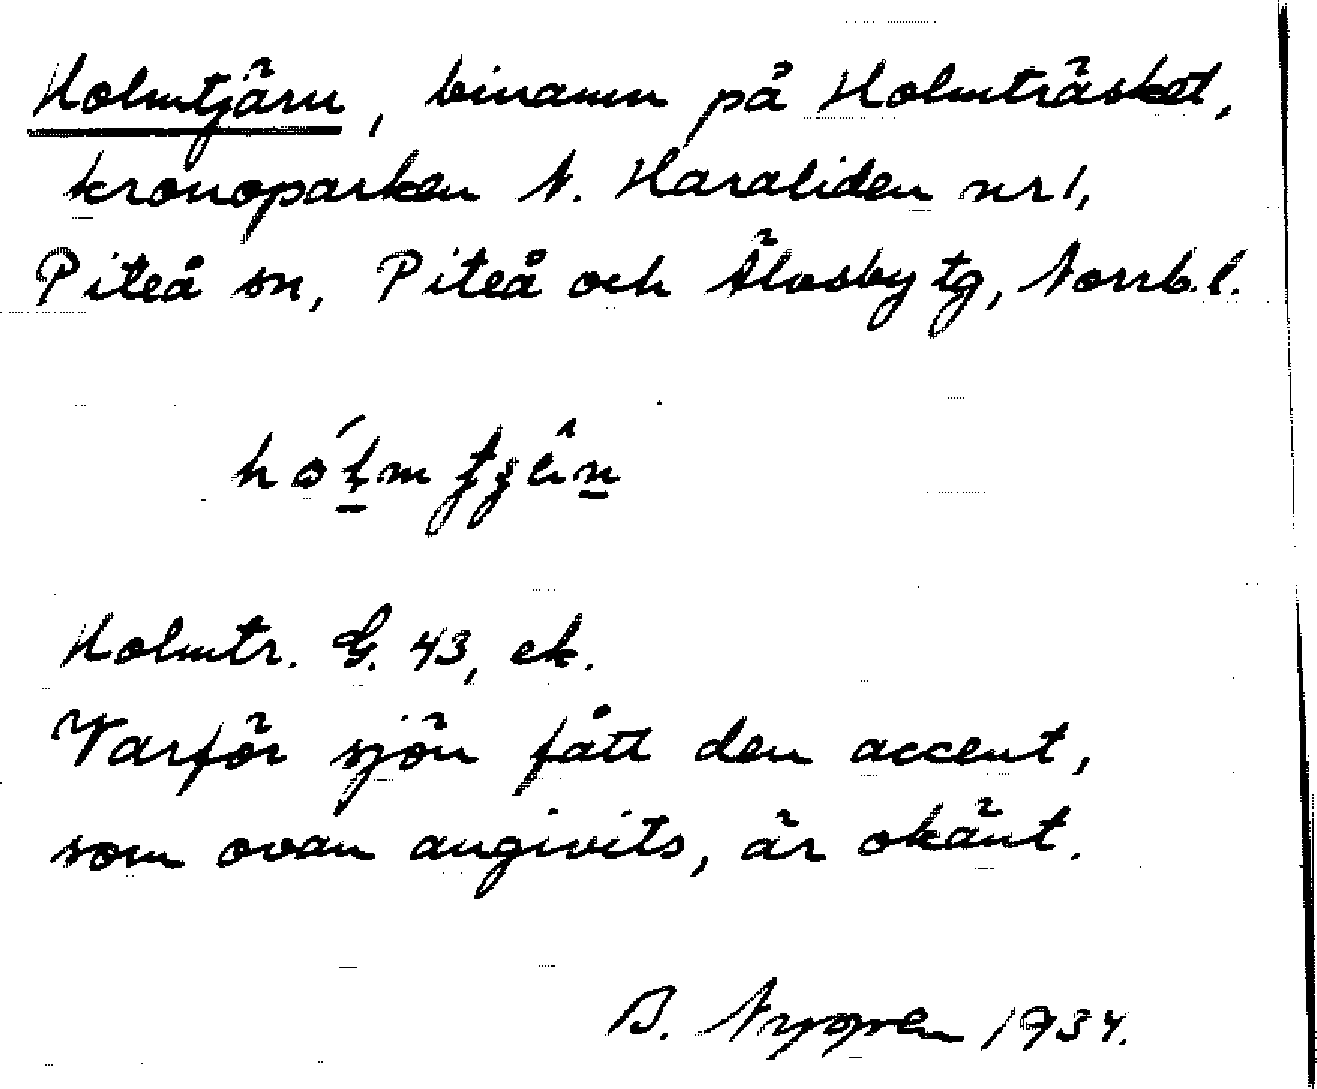 Holmtjärn, binamn på Holmträsket,
kronoparken N. Haraliden nr 1,
Piteå sn, Piteå och Älvsby tg, Norrb. l.
Holmtr. G. 43, ek.
Varför sjön fått den accent,
som ovan angivits, är okänt.
B. Nygren 1934.